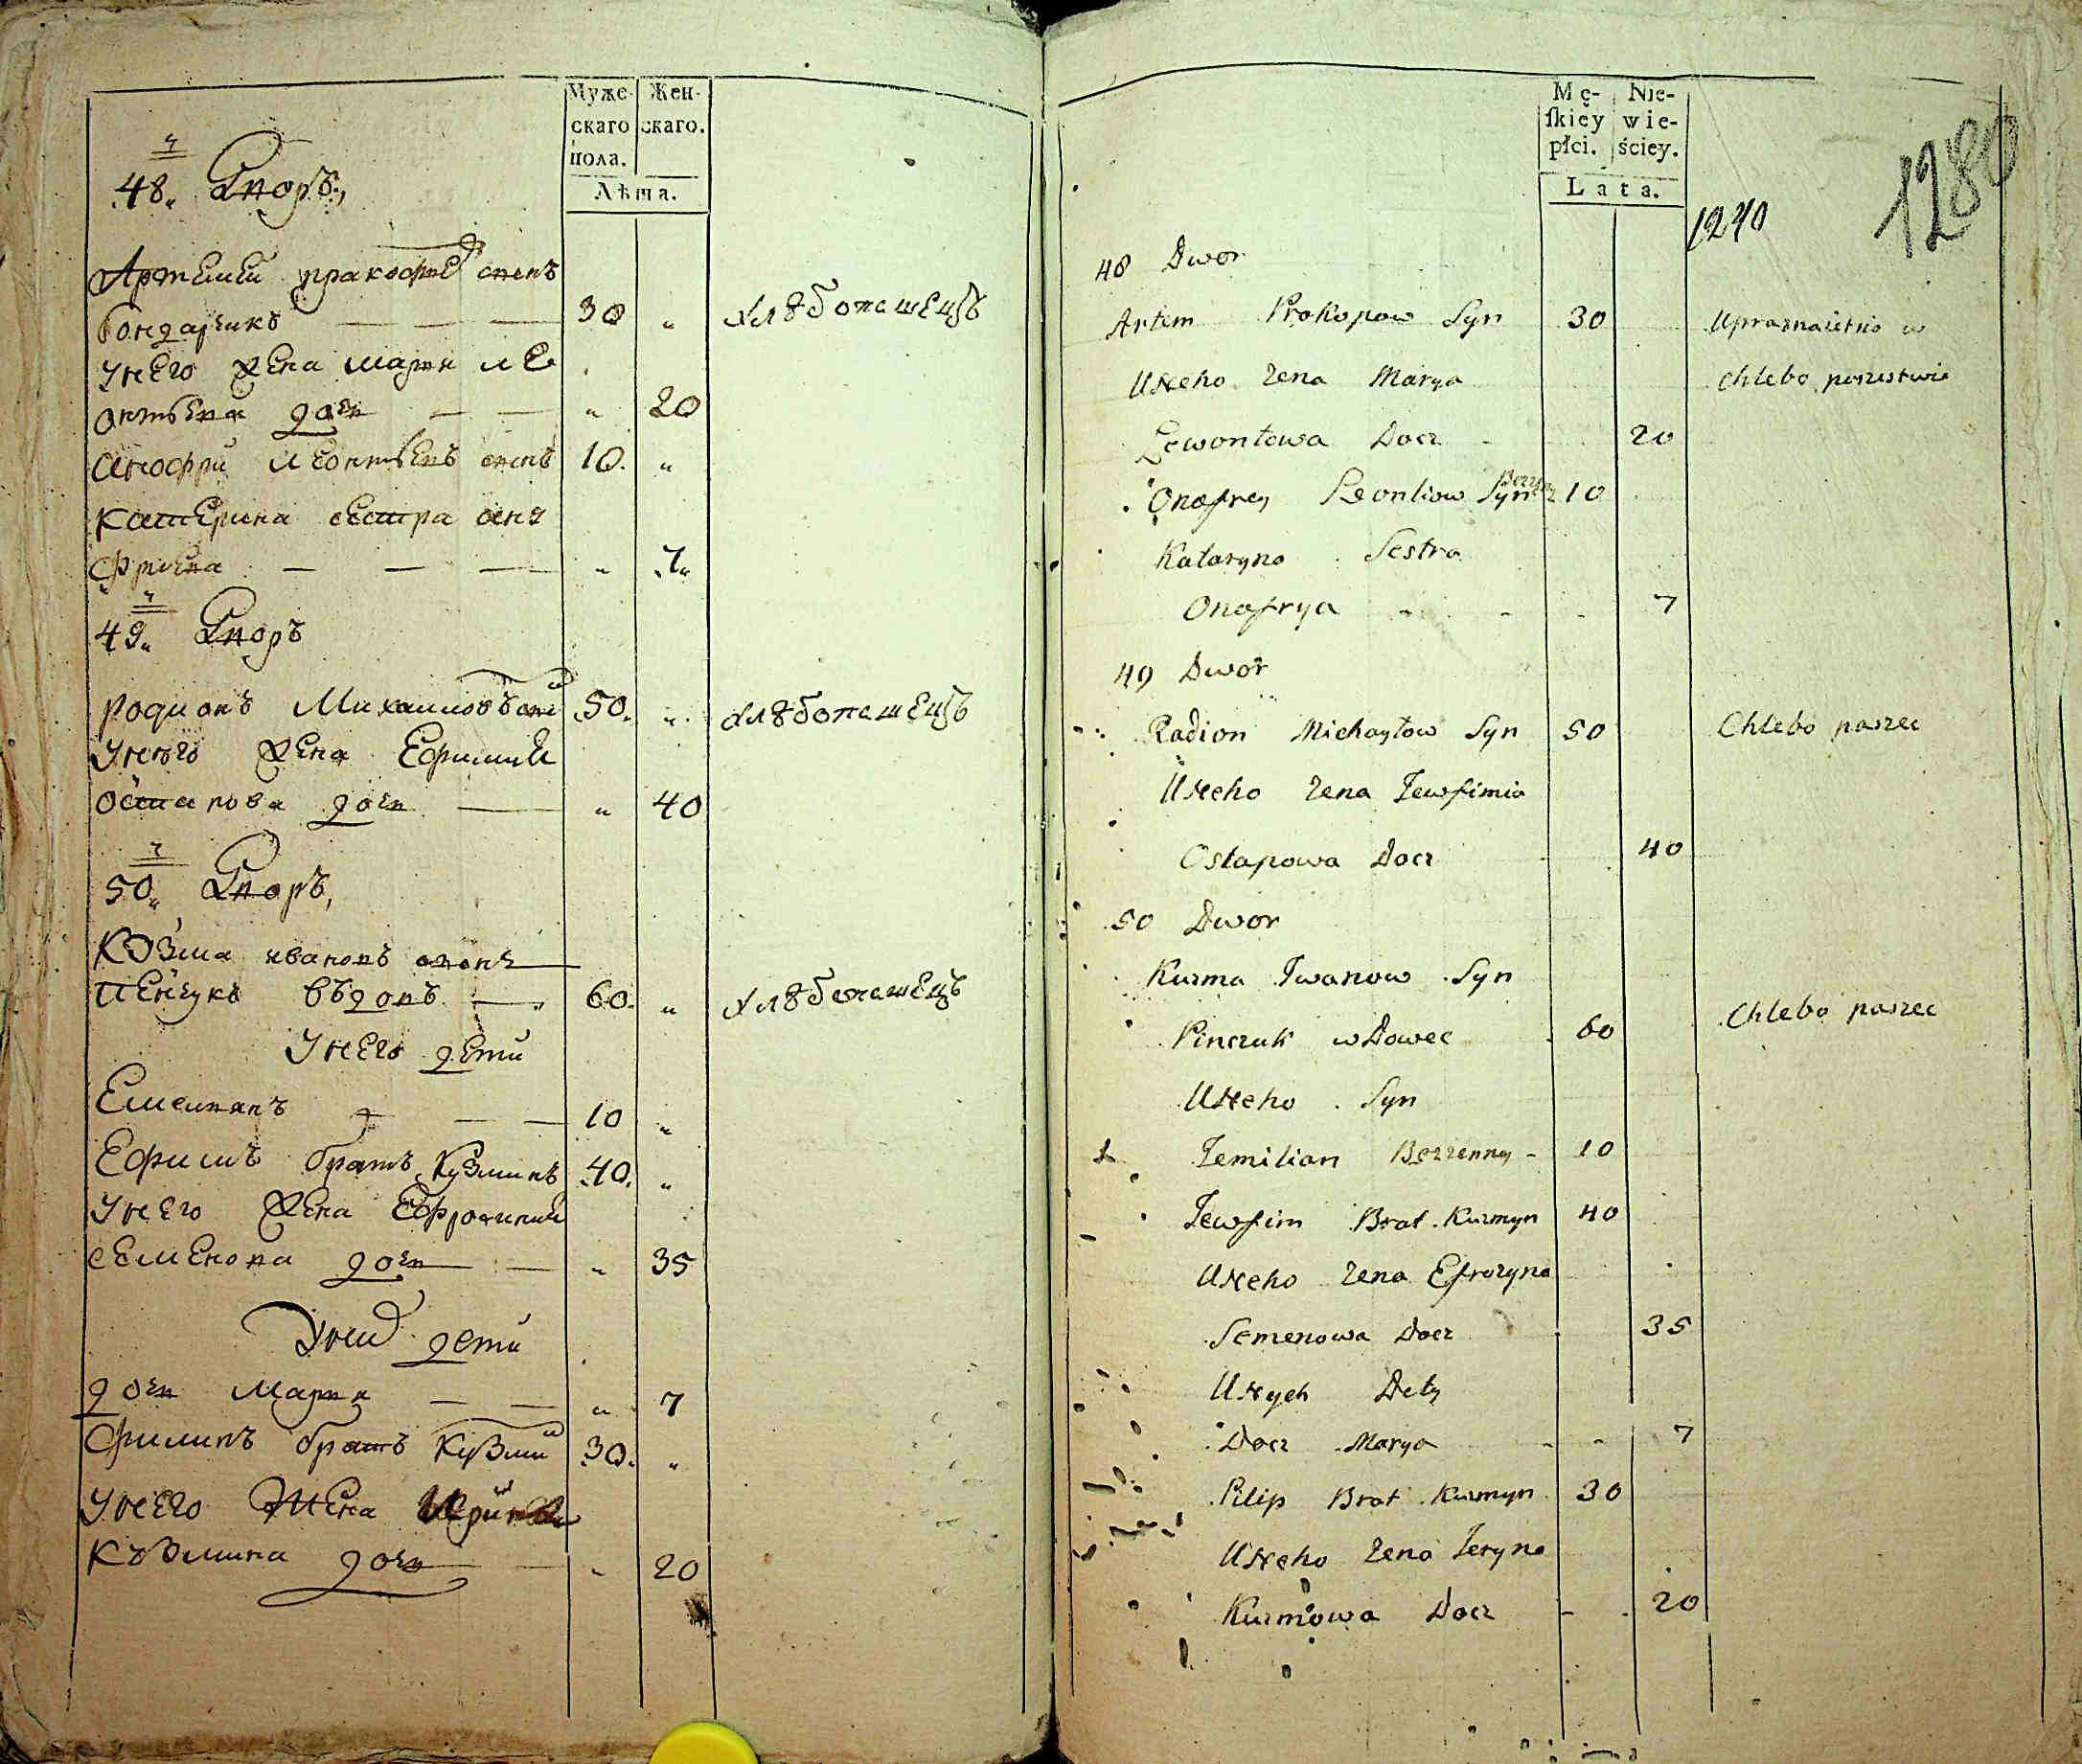 Муже-
скаго
пола.
Жен-
скаго.
Лѣта.
48. Дворъ,
Артемий пракофиев сынъ
бондарчикъ — — — 30 „ хлѣбопашецъ
Унего жена Мария ле
онтьева дочь — — „ 20
Анофри леонтьевъ сынъ 10. „
Катерина сестра ано
фриева — — — „ 7„
49„ Дворъ
Родионъ Михаиловъ сын 50. „ хлѣбопашецъ
Унего жена Ефимия
Остапова дочь — „ 40
50„ Дворъ,
Козма ивановъ сынъ
Пенчукъ вдовъ — 60. „ хлѣбопашецъ
Унего дети
Емелиянъ — — 10 „
Ефимъ братъ Кузминъ 40. „
Унего жена Ефросиния
семенова дочь — „ 35
Уних дети
дочь Мария — — „ 7
Филипъ братъ Кузмин 30. „
Унего Жена Ирина
Кузмина дочь — „ 20
Mę-
skiey
płci.
Nie-
wie-
ściey.
Lata.
1240
1280
48 Dwor
Artem Prokopow Syn 30 Upraznaietsio w
Uneho Zena Marya Chlebo paszestwie
Lewontowa Docz - 20
Onofrey Leontiow Syn 10
Kataryna Sestra
Onofrya - - - 7
49 Dwor
Radion Michayłow Syn 50 Chlebo paszec
Uneho Zena Jewfimia
Ostapowa Docz 40
50 Dwor
Kuzma Iwanow Syn
Pinczuk wDowec 60 Chlebo paszec
Uneho Syn
Jemilian Bezzenny - 10
Jewfim Brat Kuzmyn 40
Uneho Zena Efrozyna
Semenowa Docz 35
Unych Dety
Docz Marya - - 7
Pilip Brat Kuzmyn 30
Uneho Zena Jeryna
Kuzmowa Docz - 20